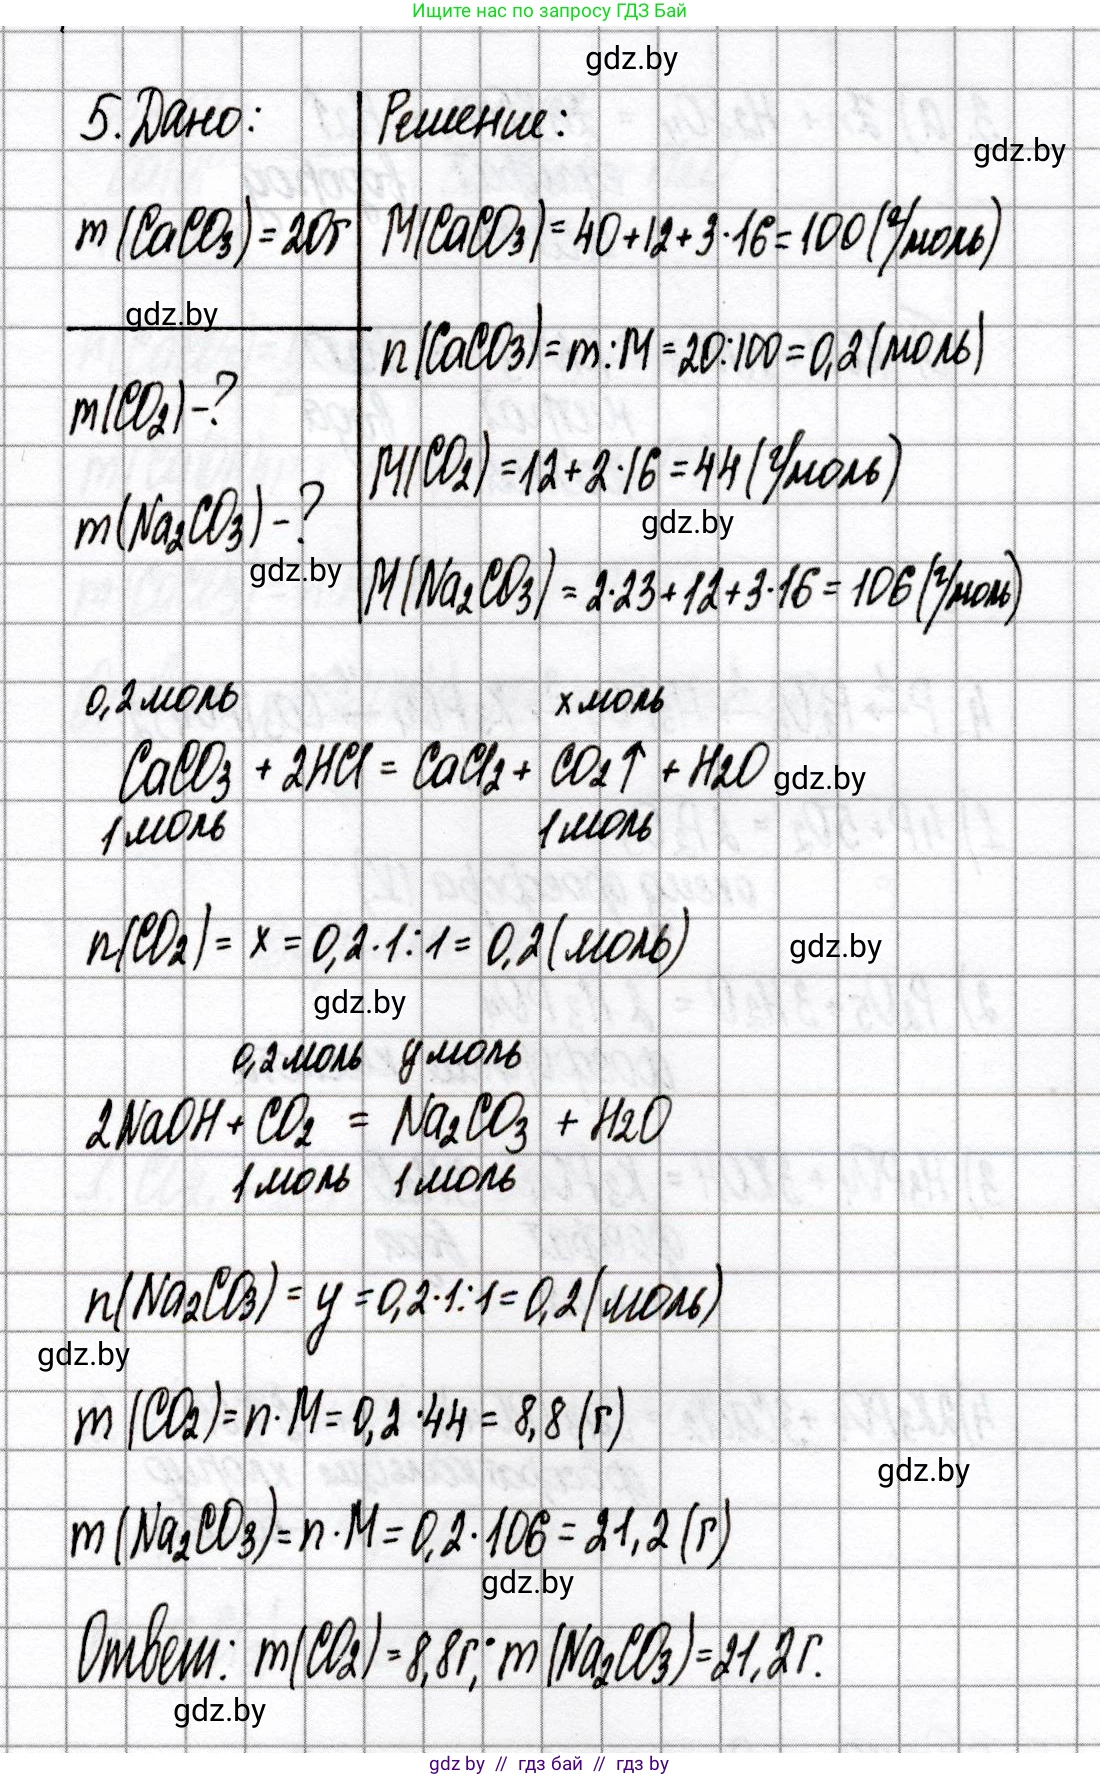 Ищите нас по запросу ГДЗ Бай
gdz.by
5. Дано:
Решение:
gdz.by
m(CaCO₃) = 20г
M(CaCO₃) = 40+12+3·16=100(г/моль)
gdz.by
n(CaCO3)=m:M=20:100=0,2(моль)
m(CO₂)-?
M(CO₂)=12+2·16=44(г/моль)
m(Na₂CO₃)-?
gdz.by
gdz.by
M(Na₂CO₃)=2·23+12+3·16=106(г/моль)
0,2моль х моль
CaCO₃ + 2HCl = CaCl₂ + CO₂↑ + H₂O
gdz.by
1 моль 1 моль
n(CO₂) = x = 0,2·1:1= 0,2(моль)
gdz.by
gdz.by
0,2моль y моль
2NaOH + CO₂ = Na₂CO₃ + H₂O
1 моль 1 моль
n(Na₂CO₃)= y =0,2·1:1=0,2(моль)
gdz.by
m(CO₂)=n·M=0,2·44=8,8(г)
gdz.by
m(Na₂CO₃)=n·M=0,2·106=21,2(г)
gdz.by
Ответ: m(CO₂)=8,8г; m(Na₂CO₃)=21,2г.
gdz.by
gdz by // гдз бай // гдз by